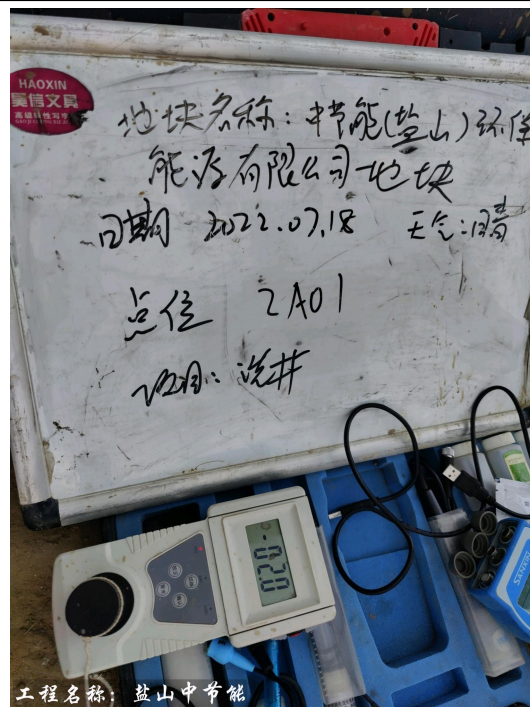 HAOXIN
昊信文具
地块名称：中节能(盐山)环保
能源有限公司地块
日期 2022.07.18 天气：晴
点位 2A01
项目：洗井
020.0
工程名称：盐山中节能